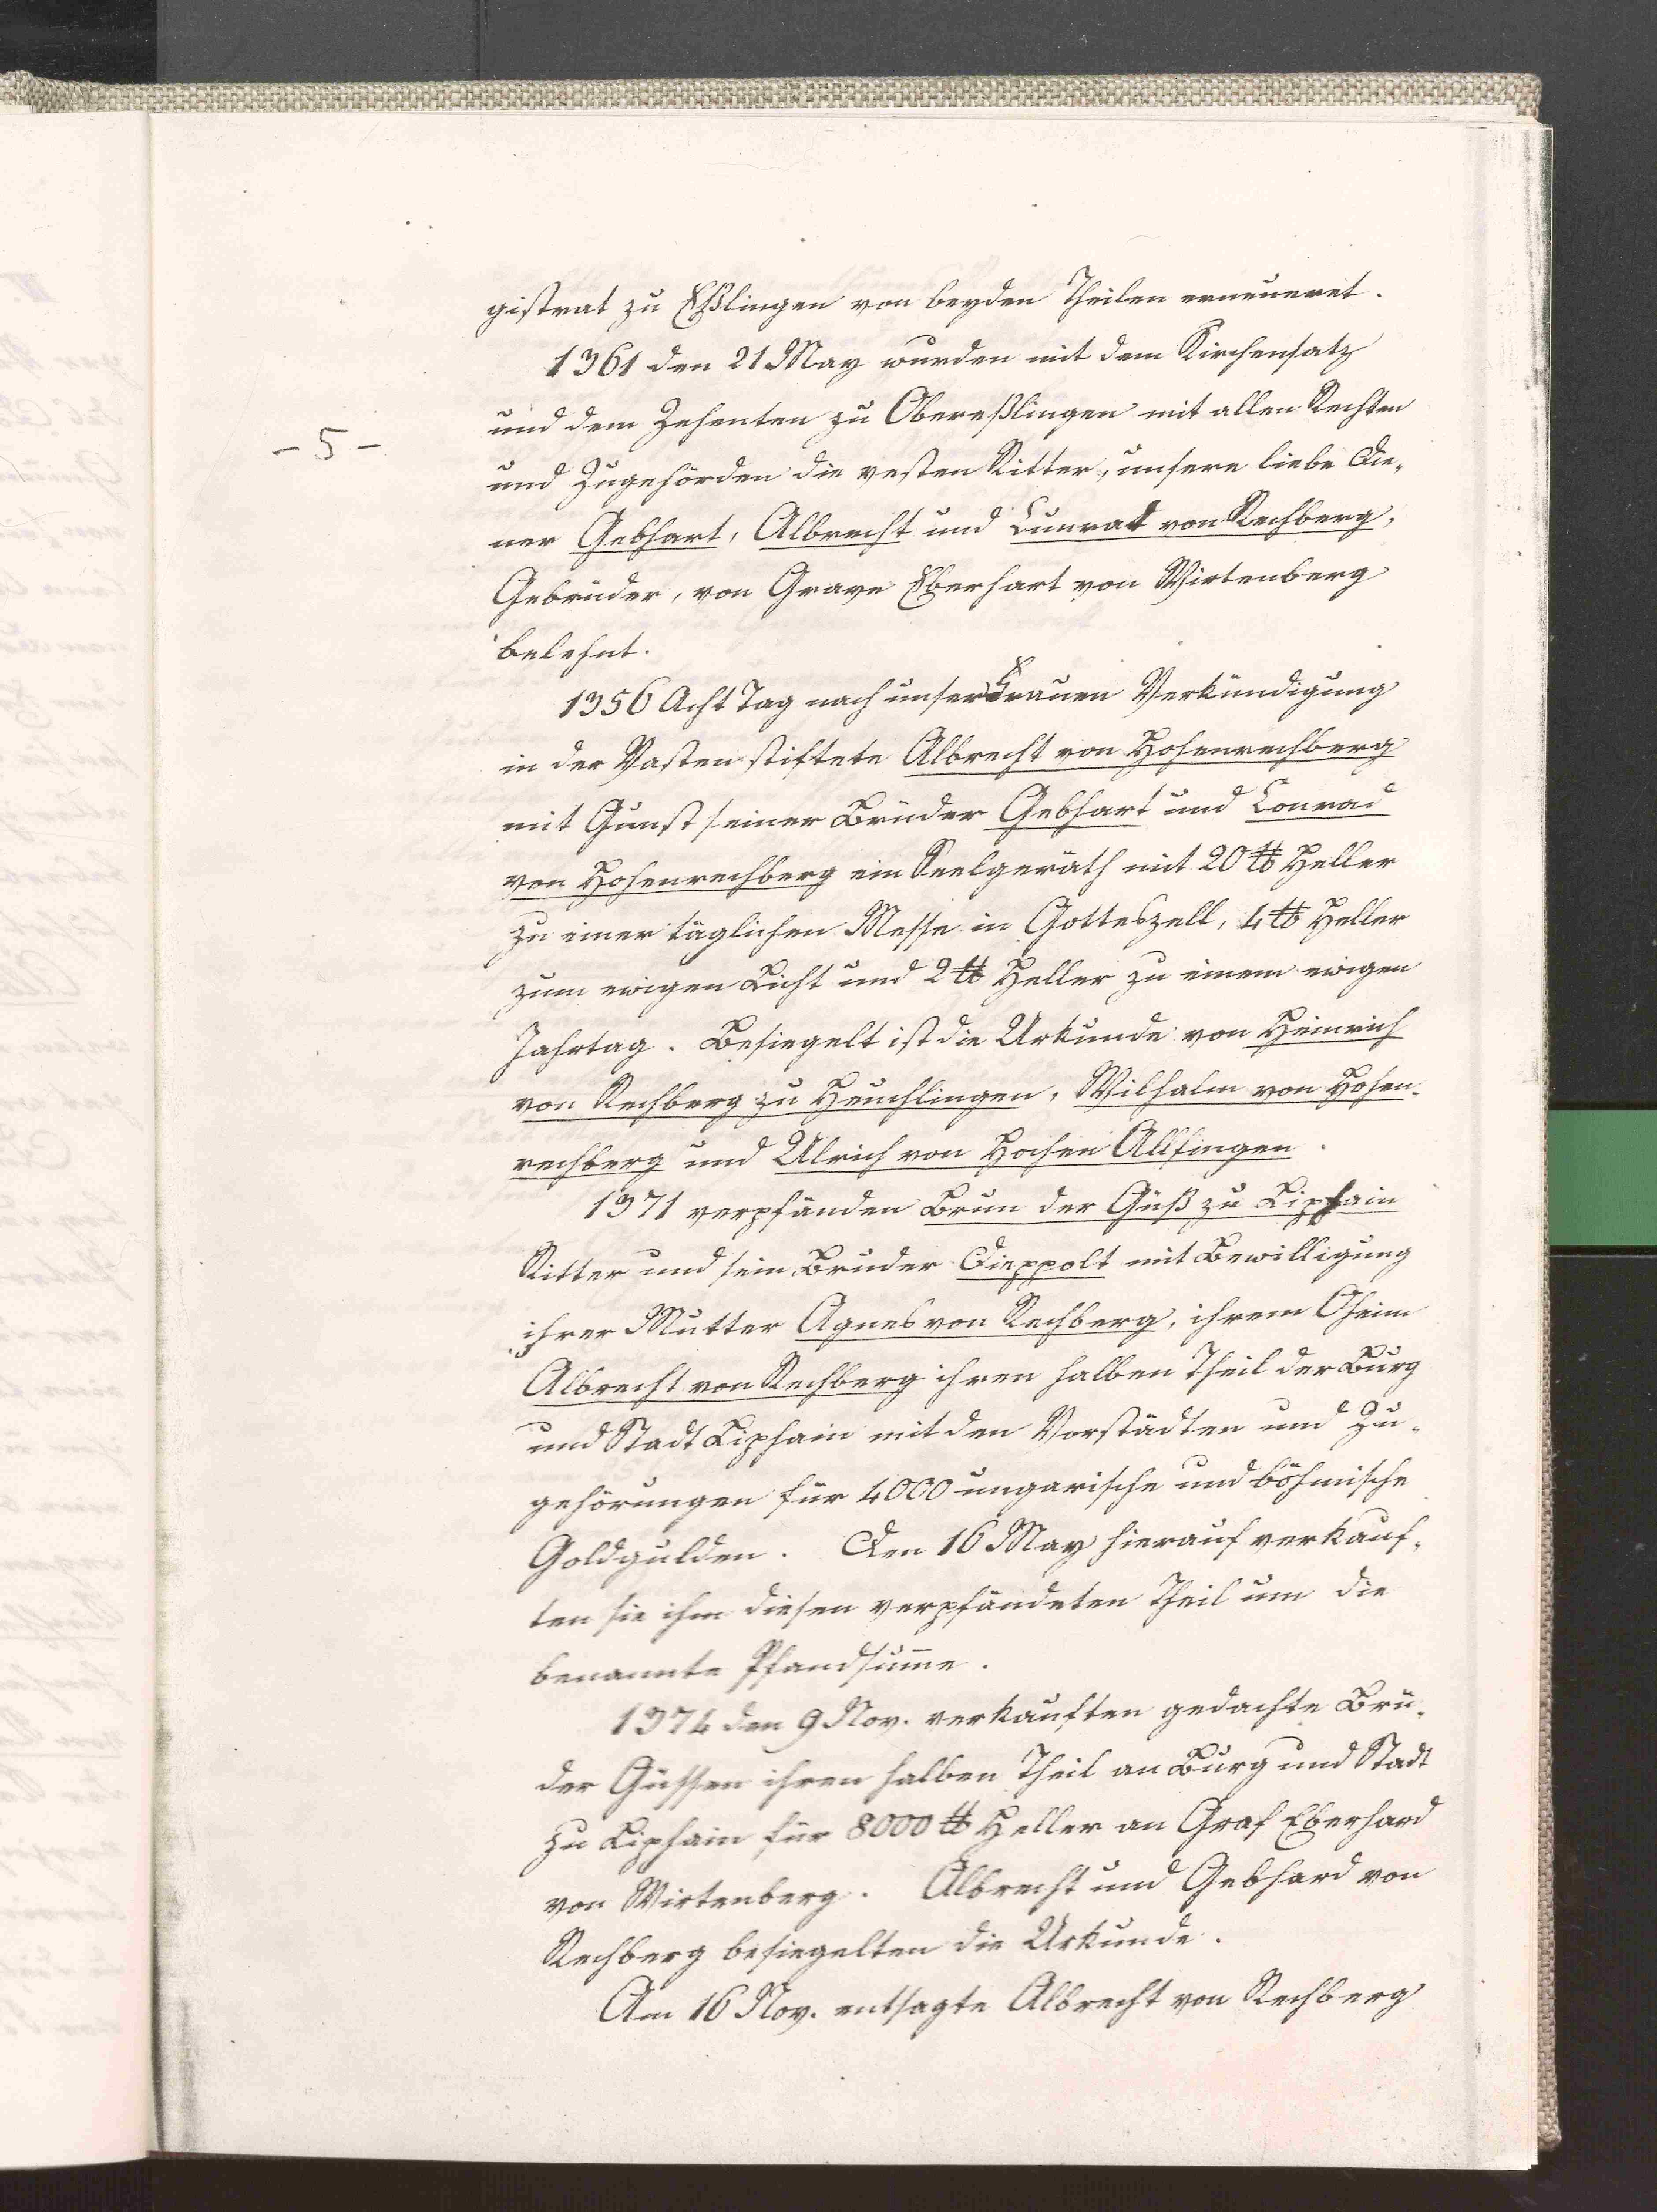 gistrat zu Eßlingen von beyden Theilen erneueret.
1361 den 21 May wurden mit dem Kirchensatz
und dem Zehenten zu Obereßlingen mit allen Rechten
- 5 -
und Zugehörden die vesten Ritter, unsere liebe Die-
ner Gebhart, Albrecht und Cunrat von Rechberg,
Gebrüder, von Grave Eberhart von Wirtenberg
belehnt.
1356 Acht Tag nach unser Frauen Verkündigung
in der Vasten stiftete Albrecht von Hohenrechberg
mit Gunst seiner Brüder Gebhart und Conrad
von Hohenrechberg ein Seelgeräth mit 20 ℔ Heller
zu einer täglichen Messe in Gotteszell, 4 ℔ Heller
zum ewigen Licht und 2 ℔ Heller zu einem ewigen
Jahrtag. Besiegelt ist die Urkunde von Heinrich
von Rechberg zu Heuchlingen, Wilhalm von Hohen-
rechberg und Ulrich von Hochen Alfingen.
1371 verpfänden Brun der Güß zu Liphain
Ritter und sein Bruder Dieppolt mit Bewilligung
ihrer Mutter Agnes von Rechberg, ihrem Oheim
Albrecht von Rechberg ihren halben Theil der Burg
und Stadt Liphain mit den Vorstädten und Zu-
gehörungen für 4000 ungarische und böhmische
Goldgulden. Den 16 May hierauf verkauf-
ten sie ihm diesen verpfändeten Theil um die
benannte Pfandsum̄e.
1374 den 9 Nov. verkauften gedachte Brü-
der Güssen ihren halben Theil an Burg und Stadt
zu Liphain für 8000 ℔ Heller an Graf Eberhard
von Wirtenberg. Albrecht und Gebhard von
Rechberg besiegelten die Urkunde.
Am 16 Nov. entsagte Albrecht von Rechberg